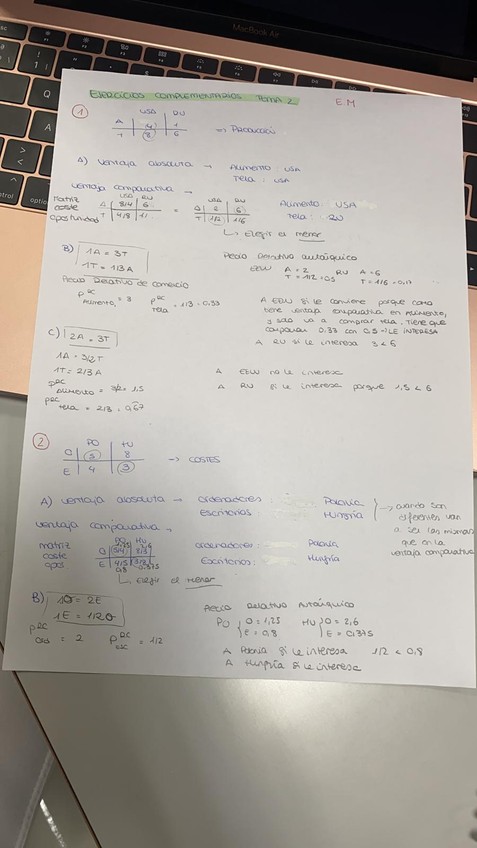 MacBook Air
EJERCICIOS COMPLEMENTARIOS TEMA 2
E.M
1
USA RU
A 4 1
T 8 6
=> PRODUCCIÓN
A) Ventaja absoluta → Alimento: USA
Tela: USA
Ventaja comparativa →
matriz coste oportunidad
USA RU
A 8/4 6
T 4/8 1/
=
USA RU
A 2 6
T 1/2 1/6
Alimento: USA
Tela: RU
↳ Elegir el menor
B) 1A = 3T
1T = 1/3A
Precio Relativo autárquico
EEUU A = 2 T = 1/2 = 0,5
RU A = 6 T = 1/6 = 0,17
Precio Relativo de comercio
P RC Alimento = 3 P RC tela = 1/3 = 0,33
A EEUU si le conviene porque como
tiene ventaja comparativa en ALIMENTO,
y solo va a comprar tela, tiene que
comparar 0,33 con 0,5 → LE INTERESA
A RU si le interesa 3 < 6
C) 2A = 3T
1A = 3/2T
1T = 2/3A
P RC Alimento = 3/2 = 1,5
P RC tela = 2/3 = 0,67
A EEUU no le interesa
A RU si le interesa porque 1,5 < 6
2
PO HU
O 5 8
E 4 3
→ COSTES
A) Ventaja absoluta → ordenadores: Polonia
Escritorios: Hungría
→ cuando son
diferentes van
a ser los mismos
que en la
ventaja comparativa
Ventaja comparativa →
matriz coste opor
PO HU
1,25 2,6
O 5/4 8/3
E 4/5 3/8
0,8 0,375
ordenadores: Polonia
Escritorios: Hungría
↳ Elegir el menor
B) 1O = 2E
1E = 1/2O
P RC ord = 2 P RC esc = 1/2
Precio Relativo Autárquico
PO { O = 1,25 E = 0,8
HU { O = 2,6 E = 0,375
A Polonia si le interesa 1/2 < 0,8
A Hungría si le interesa